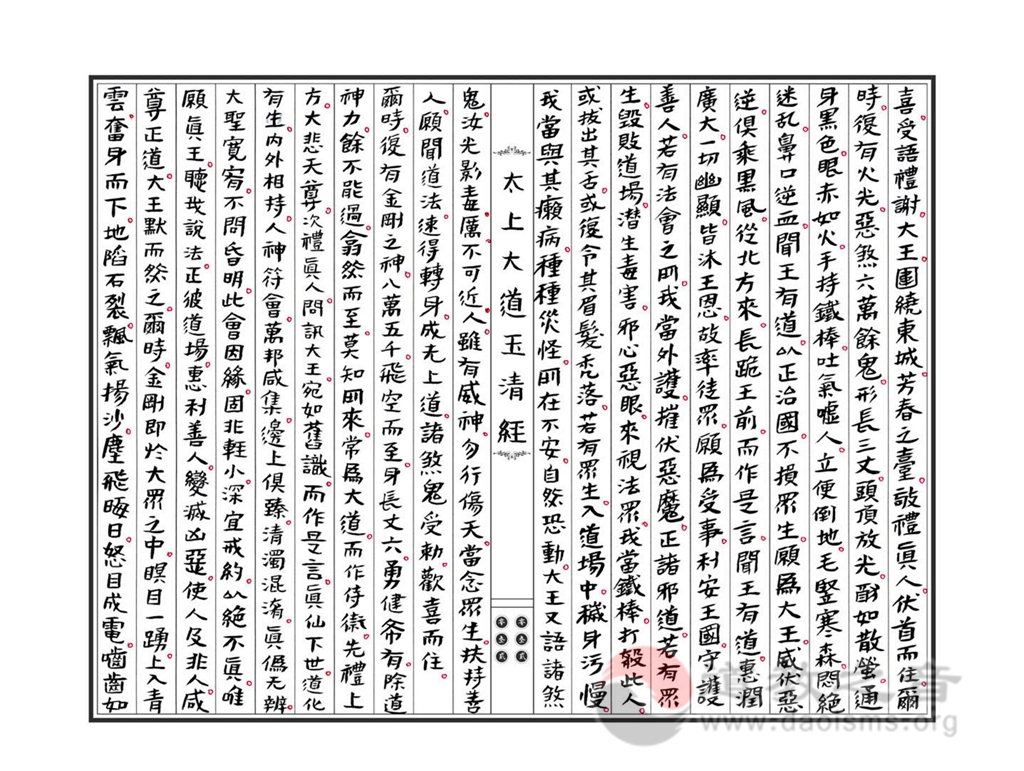 喜受語禮謝大王圍繞東城芳春之臺敬禮眞人伏首而住爾
時復有火光惡煞六萬餘鬼形長三丈頭頂放光酧如散螢通
身黑色眼赤如火手持鐵棒吐氣噓人立便倒地毛竪寒森悶絕
迷乱鼻口逆血聞王有道以正治國不損眾生願爲大王威伏惡
逆俱乘黑風從北方來長跪王前而作是言聞王有道惠潤
廣大一切幽顯皆沐王恩故率徒眾願爲受事利安王國守護
善人若有法會之所我當外護摧伏惡魔正諸邪道若有眾
生毀敗道場潛生毒害邪心惡眼來視法眾我當鐵棒打殺此人
或拔出其舌或復令其眉髮禿落若有眾生入道場中穢身污慢
我當與其癩病種種災怪所在不安自然恐動大王又語諸煞
太上大道玉清經
零叁貳
零叁貳
鬼汝光影毒厲不可近人雖有威神勿行傷夭當念眾生扶持善
人願聞道法速得轉身成无上道諸煞鬼受勑歡喜而住
爾時復有金剛之神八萬五千飛空而至身長丈六勇健希有除道
神力餘不能過翕然而至莫知所來常爲大道而作侍衛先禮上
方大悲天尊次禮眞人問訊大王宛如舊識而作是言眞仙下世道化
有生內外相持人神符會萬邦咸集邊上俱臻清濁混淆眞僞无辨
大聖寬宥不問昏明此會因緣固非輊小深宜戒約以絕不眞唯
願眞王聽我說法正彼道場惠利善人變滅凶惡使人及非人咸
尊正道大王默而然之爾時金剛即於大眾之中瞑目一踴上入青
雲奮身而下地陷石裂飄氣揚沙塵飛晦日怒目成電嚙齒如
道教之音
www.daoisms.org